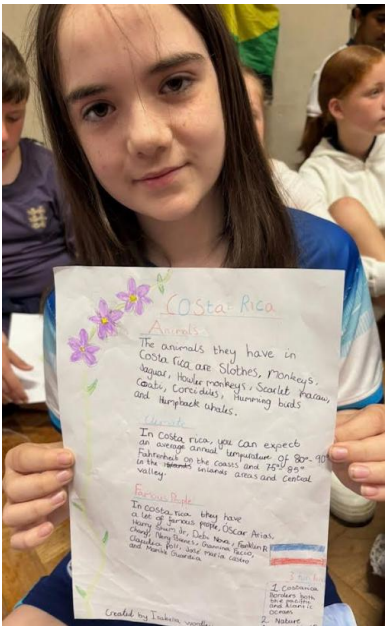 Costa Rica
Animals
The animals they have in
Costa rica are Slothes, Monkeys,
Jaguar, Howler monkeys, Scarlet macaw,
Coati, Corcidiles, Humming birds
and Humpback whales.
In costa rica, you can expect
an average annual temperature of 80°- 90°
Fahrenheit on the coasts and 75°-85°
in the inlands areas and Central
valley.
Famous People
In costa rica they have
a lot of famous people, Oscar Arias,
Harry Shum Jr, Debi Nova, Franklin
Chang, Keylor Giannina Facio,
Claudia Poll, José Maria Castro
and Marita Guardia
1 Costarica
Borders both
the pacific
and Atlantic
oceans
2 Nature
Created by Isabella